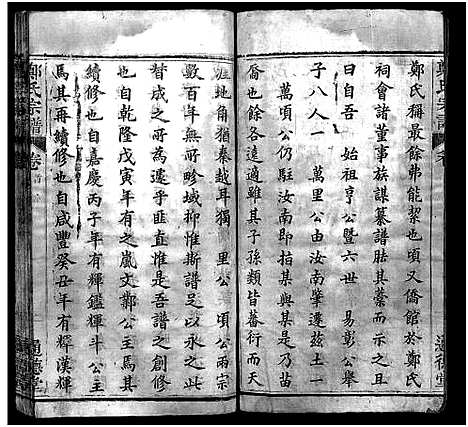 鄭氏稱最餘弗能絜也頃又僑館於鄭氏
祠會諸董事族謀纂譜胠其藁而示之且
曰自吾 始祖亨公暨六世 易彰公舉
子八人一 萬里公由汝南肇遷兹土一
萬頃公仍駐汝南即指某與某是乃苗
裔也餘各遠適雖其子孫類皆蕃衍而天
涯地角猶秦越耳獨 里公 頃公兩宗
數百年無所畛域抑惟斯譜足以永之此
督成之所以遑遑乎匪直惟是吾譜之創修
也自乾隆戊寅年有之嵐文鄭公主焉其
續修也自嘉慶丙子年有輝鑑輝斗公主
焉其再續修也自咸豐癸丑年有輝漢輝
鄭氏宗譜
卷
通德堂
鄭氏宗譜
通德堂